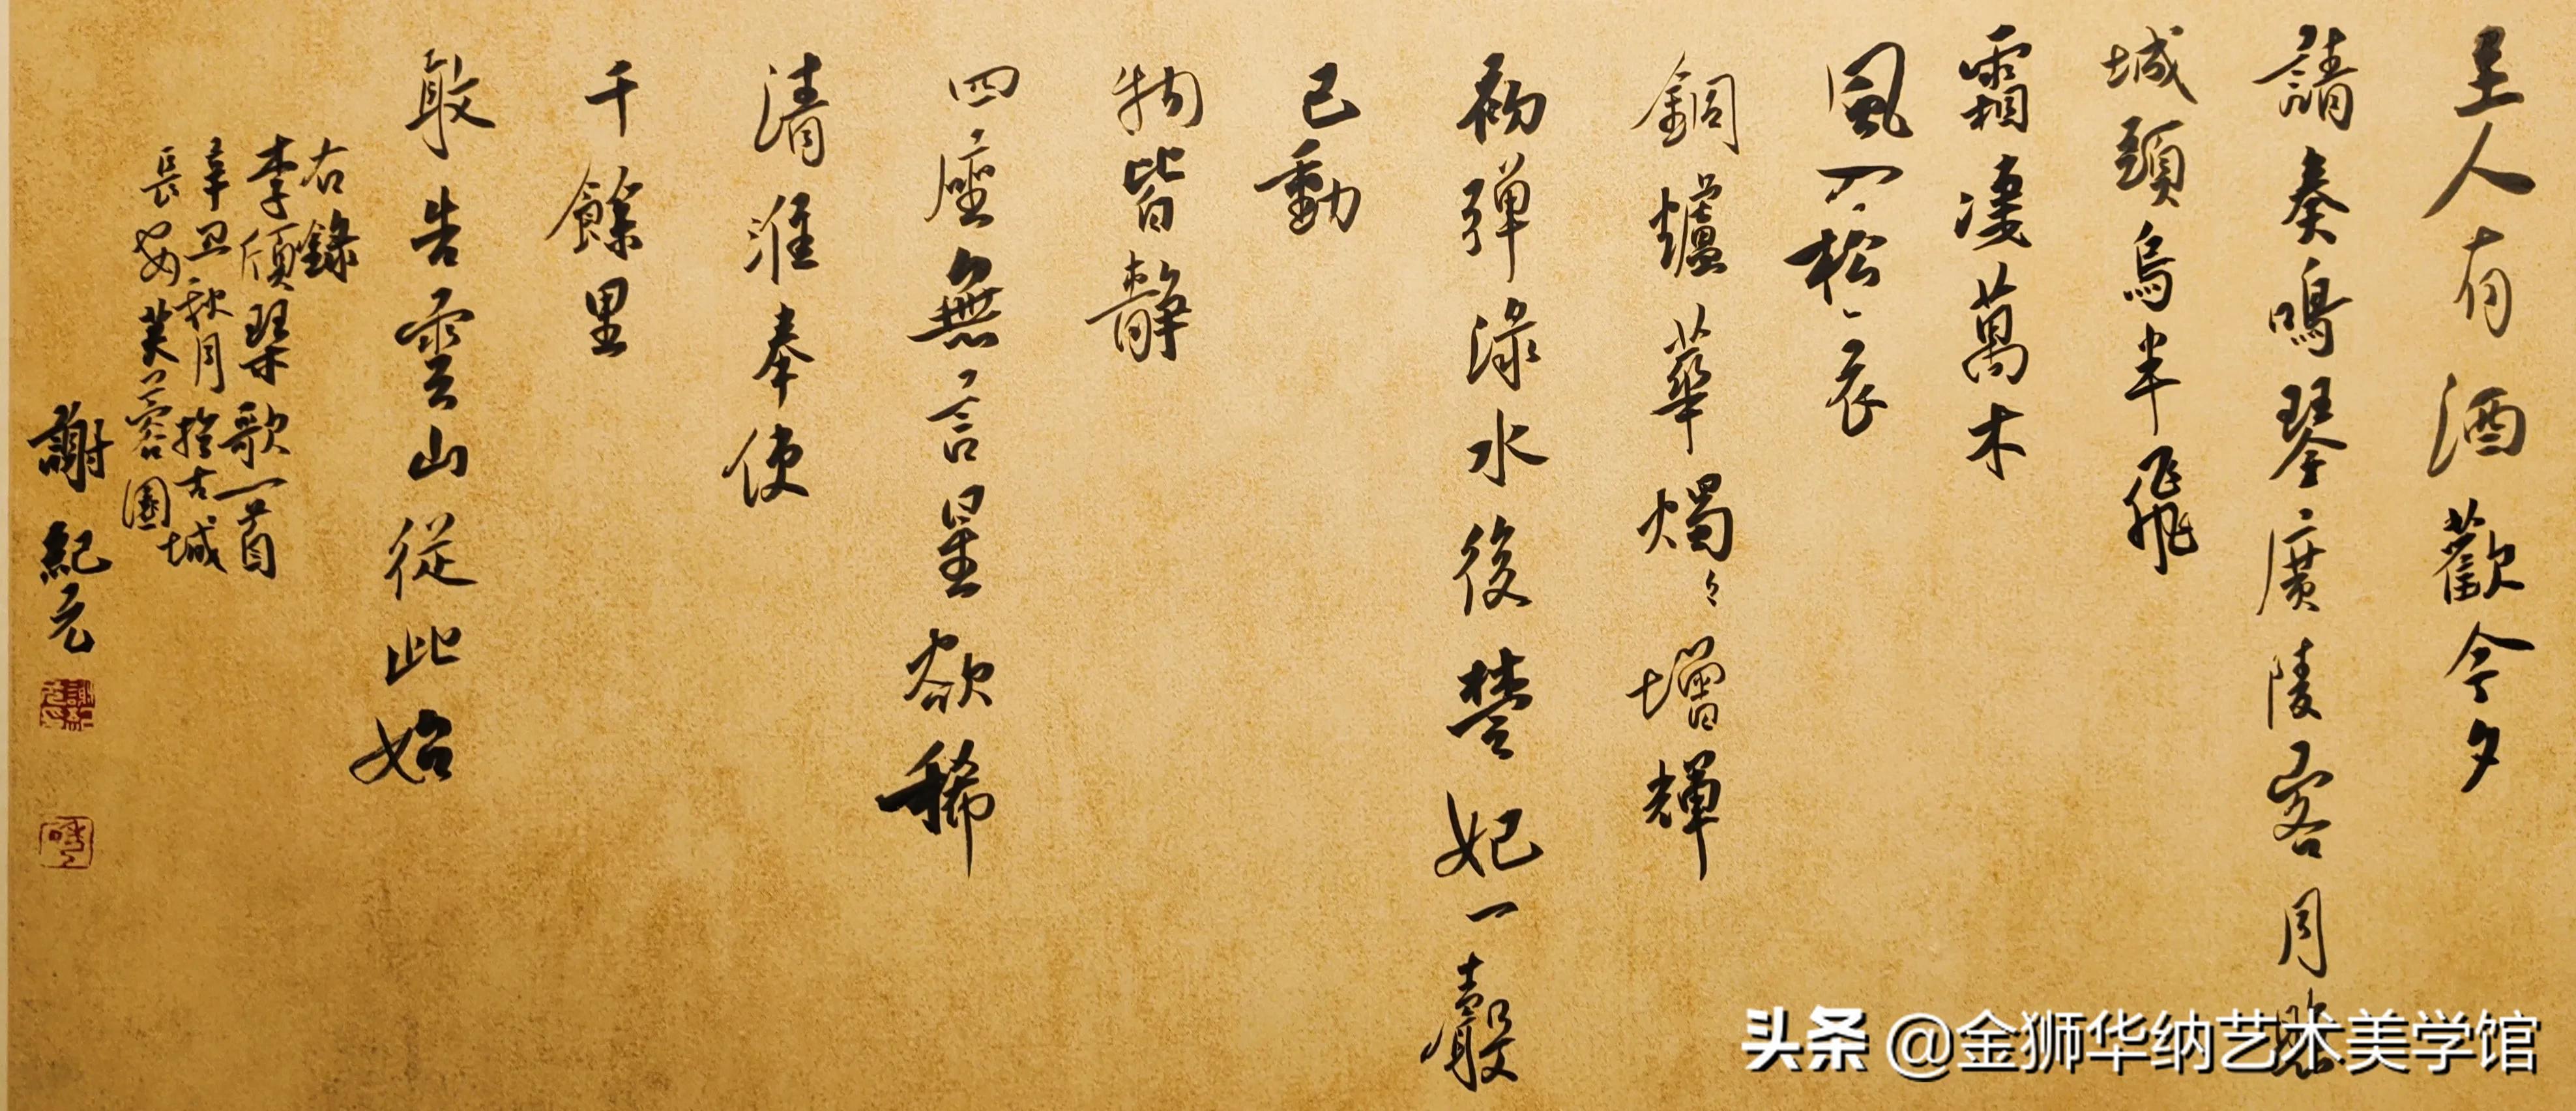 主人有酒歡今夕
請奏鳴琴廣陵客月照
城頭烏半飛
霜凄萬木
風入松衣
銅爐華燭々增輝
初彈淥水後楚妃一聲
已動
物皆靜
四座無言星欲稀
清淮奉使
千餘里
敢告雲山從此始
右錄
李頎琴歌一首
辛丑秋月扵古城
長安芙蓉園
謝紀元
头条 @金狮华纳艺术美学馆